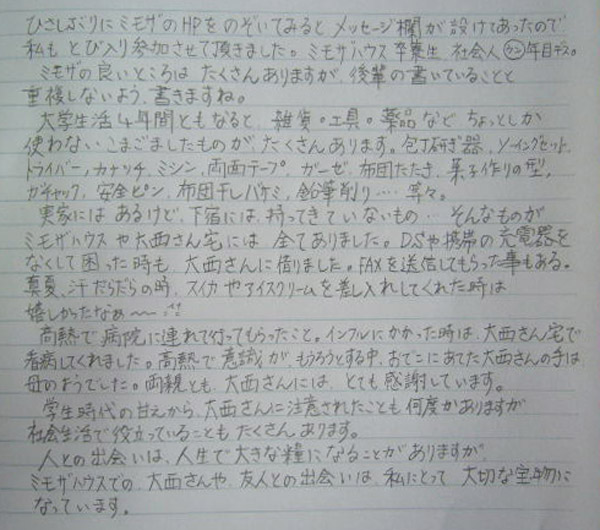 ひさしぶりにミモザのHPをのぞいてみるとメッセージ欄が設けてあったので
私もとび入り参加させて頂きました。ミモザハウス卒業生、社会人 年目デス。
ミモザの良いところはたくさんありますが、後輩の書いていることと
重複しないよう、書きますね。
大学生活4年間ともなると、雑貨・工具・薬品などちょっとしか
使わない、こまごましたものがたくさんあります。包丁研ぎ器、ソーイングセット、
ドライバー、カナヅチ、ミシン、両面テープ、ガーゼ、布団たたき、菓子作りの型、
ガチャック、安全ピン、布団干しバサミ、鉛筆削り…等々。
実家にはあるけど、下宿には、持ってきていないもの…そんなものが
ミモザハウスや大西さん宅には、全てありました。DSや携帯の充電器を
なくして困った時も、大西さんに借りました。FAXを送信してもらった事もある。
真夏、汗だらだらの時、スイカやアイスクリームを差し入れしてくれた時は
嬉しかったなぁ〜〜!!
高熱で病院に連れて行ってもらったこと。インフルにかかった時は、大西さん宅で
看病してくれました。高熱で意識が、もうろうとする中、おでこにあてた大西さんの手は
母のようでした。両親とも、大西さんには、とても感謝しています。
学生時代の甘えから、大西さんに注意されたことも何度かありますが
社会生活で役立っていることもたくさんあります。
人との出会いは、人生で大きな糧になることがありますが、
ミモザハウスでの、大西さんや、友人との出会いは、私にとって、大切な宝物に
なっています。